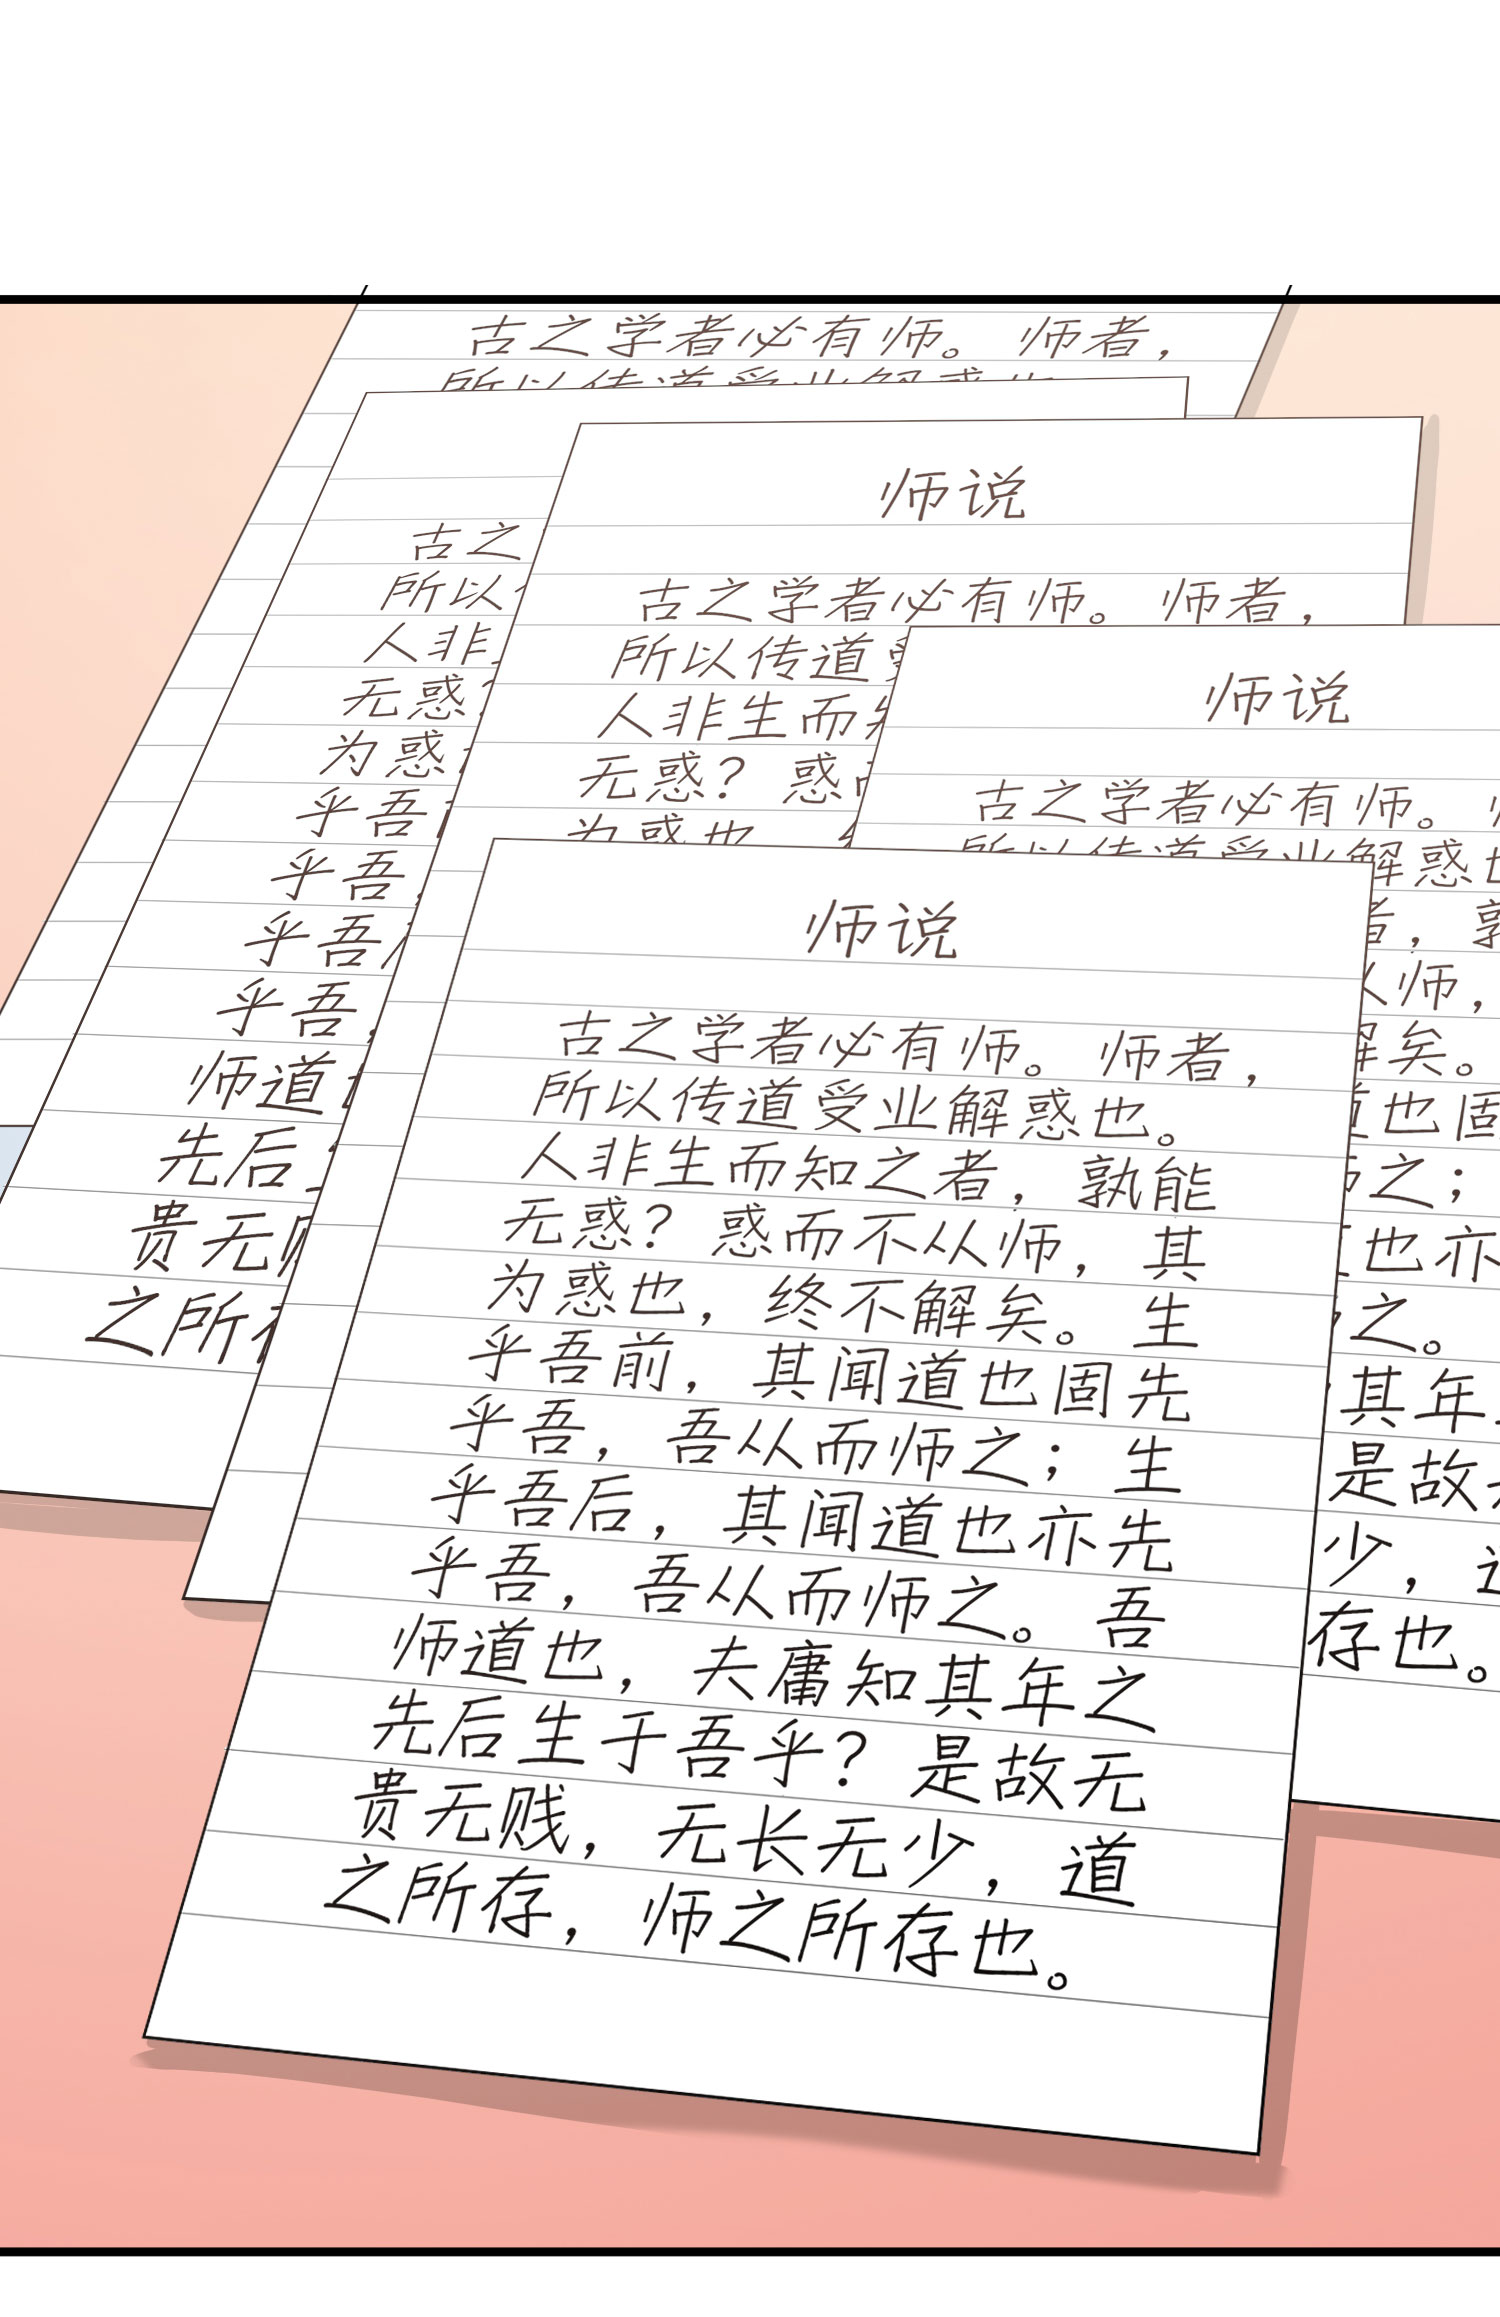 古之学者必有师。师者，
所以传道受业解惑也
古之
所以
人非
无惑？
为惑
乎吾
乎吾，
乎吾
乎吾，
师道
先后
贵无
之所
师说
古之学者必有师。师者，
所以传道
人非生而
无惑？惑
为惑也
师说
古之学者必有师。
所以传道受业解惑
者，
从师，
解矣。
也固
师之；
也亦
之。
其年
是故
少，
存也。
师说
古之学者必有师。师者，
所以传道受业解惑也。
人非生而知之者，孰能
无惑？惑而不从师，其
为惑也，终不解矣。生
乎吾前，其闻道也固先
乎吾，吾从而师之；生
乎吾后，其闻道也亦先
乎吾，吾从而师之。吾
师道也，夫庸知其年之
先后生于吾乎？是故无
贵无贱，无长无少，道
之所存，师之所存也。